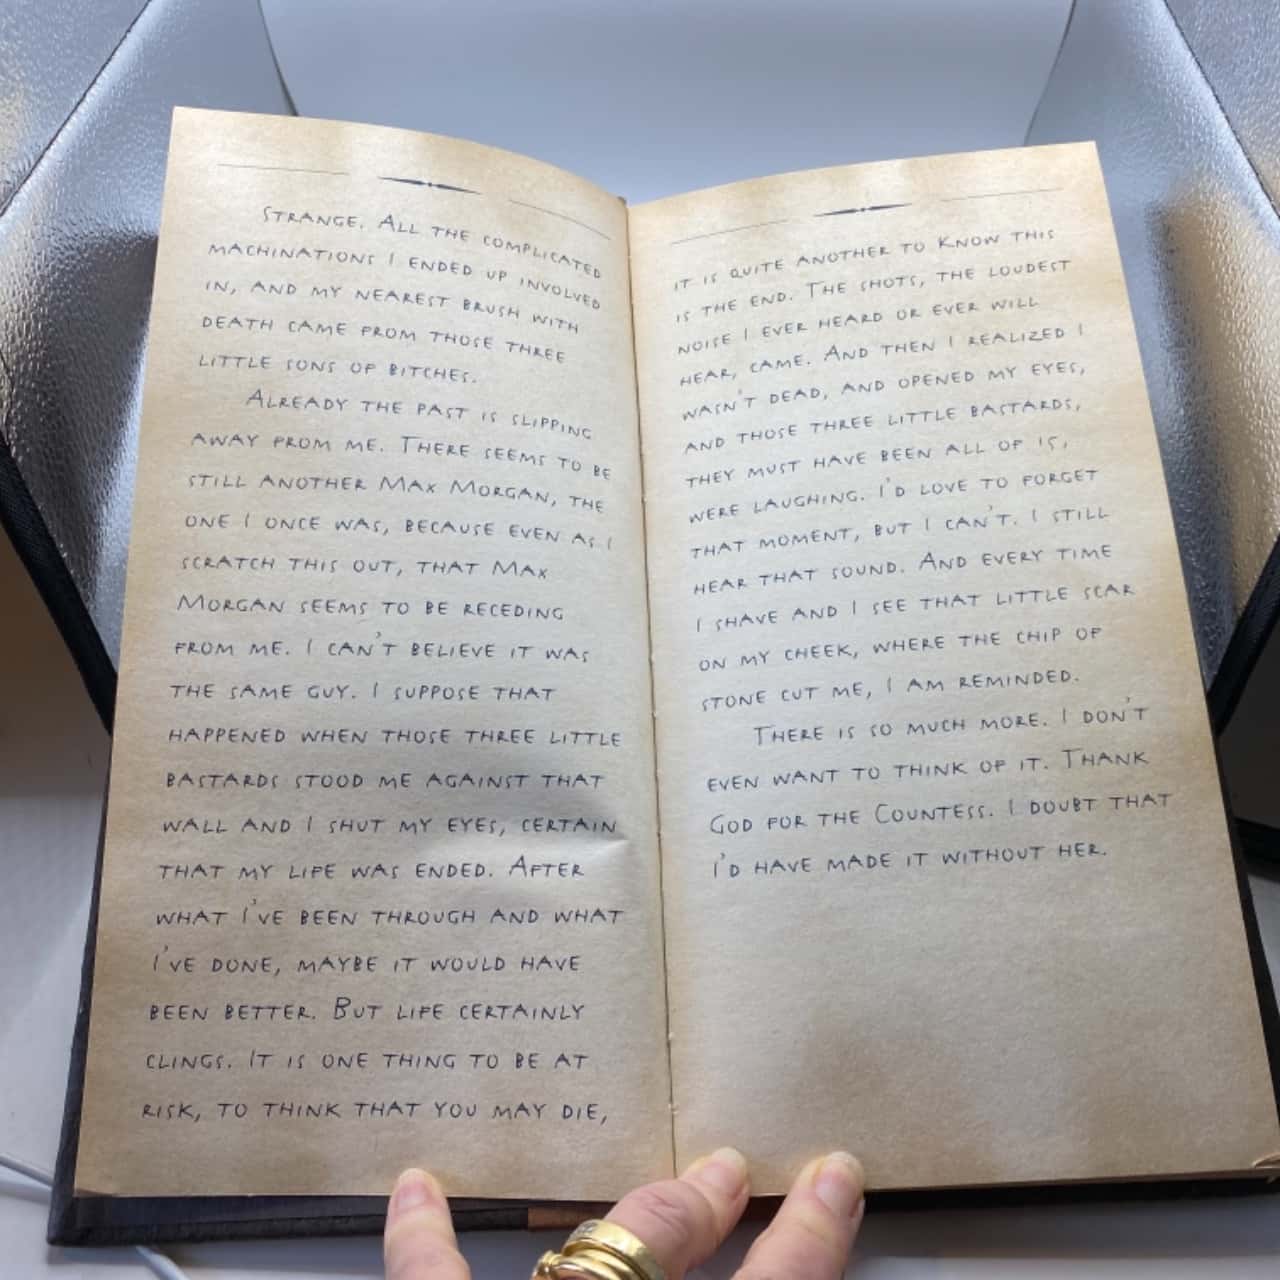 STRANGE. ALL THE COMPLICATED
MACHINATIONS I ENDED UP INVOLVED
IN, AND MY NEAREST BRUSH WITH
DEATH CAME FROM THOSE THREE
LITTLE SONS OF BITCHES.
ALREADY THE PAST IS SLIPPING
AWAY FROM ME. THERE SEEMS TO BE
STILL ANOTHER MAX MORGAN, THE
ONE I ONCE WAS, BECAUSE EVEN AS I
SCRATCH THIS OUT, THAT MAX
MORGAN SEEMS TO BE RECEDING
FROM ME. I CAN'T BELIEVE IT WAS
THE SAME GUY. I SUPPOSE THAT
HAPPENED WHEN THOSE THREE LITTLE
BASTARDS STOOD ME AGAINST THAT
WALL AND I SHUT MY EYES, CERTAIN
THAT MY LIFE WAS ENDED. AFTER
WHAT I'VE BEEN THROUGH AND WHAT
I'VE DONE, MAYBE IT WOULD HAVE
BEEN BETTER. BUT LIFE CERTAINLY
CLINGS. IT IS ONE THING TO BE AT
RISK, TO THINK THAT YOU MAY DIE,
IT IS QUITE ANOTHER TO KNOW THIS
IS THE END. THE SHOTS, THE LOUDEST
NOISE I EVER HEARD OR EVER WILL
HEAR, CAME. AND THEN I REALIZED I
WASN'T DEAD, AND OPENED MY EYES,
AND THOSE THREE LITTLE BASTARDS,
THEY MUST HAVE BEEN ALL OF 15,
WERE LAUGHING. I'D LOVE TO FORGET
THAT MOMENT, BUT I CAN'T. I STILL
HEAR THAT SOUND. AND EVERY TIME
I SHAVE AND I SEE THAT LITTLE SCAR
ON MY CHEEK, WHERE THE CHIP OF
STONE CUT ME, I AM REMINDED.
THERE IS SO MUCH MORE. I DON'T
EVEN WANT TO THINK OF IT. THANK
GOD FOR THE COUNTESS. I DOUBT THAT
I'D HAVE MADE IT WITHOUT HER.